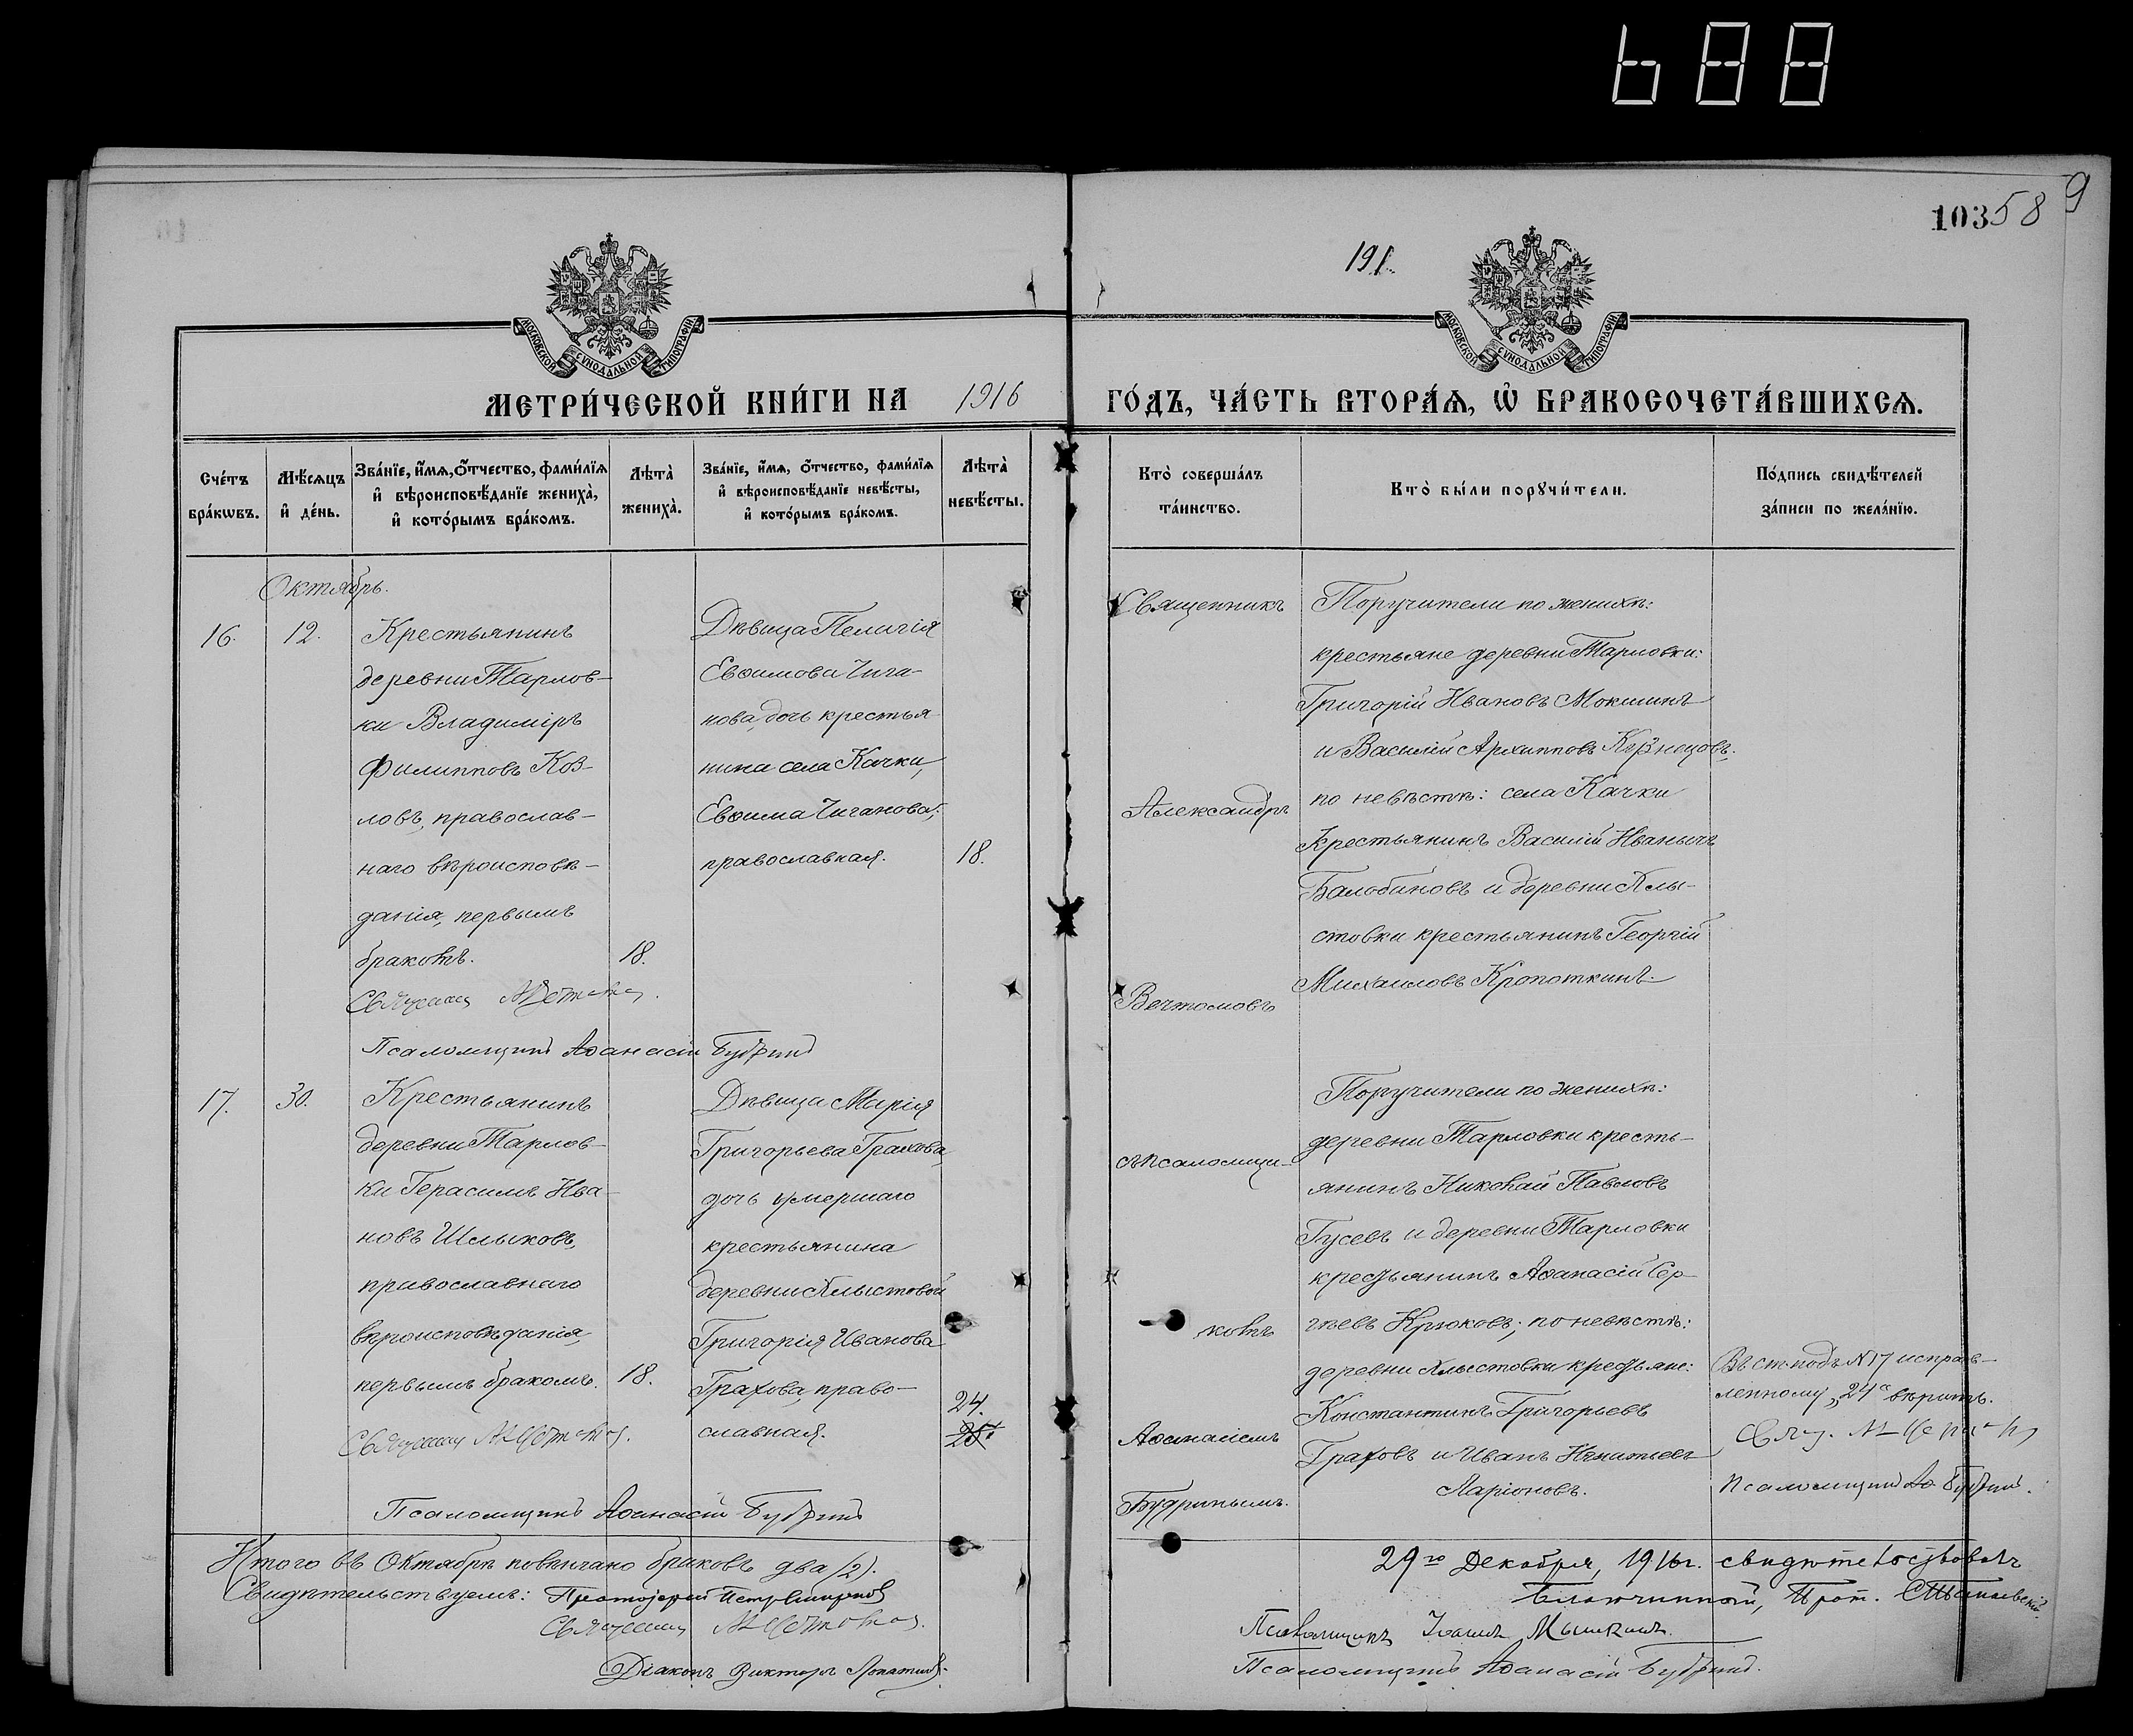 688
10358
9
191
МОСКОВСКОЙ СѴНОДАЛЬНОЙ ТИПОГРАФІИ
МОСКОВСКОЙ СѴНОДАЛЬНОЙ ТИПОГРАФІИ
МЕТРИ́ЧЕСКОЙ КНИ́ГИ НА 1916 ГО́ДЪ, ЧА́СТЬ ВТОРА́Ѧ, Ѡ҆ БРАКОСОЧЕТА́ВШИХСѦ.
Сче́тъ бра́кѡвъ.
Мѣ́сѧцъ и҆ де́нь.
Зва́нїе, и҆́мѧ, ѻ҆́тчество, фами́лїѧ и҆ вѣроисповѣ́данїе жениха̀, и҆ кото́рымъ бра́комъ.
Лѣта̀ жениха̀.
Зва́нїе, и҆́мѧ, ѻ҆́тчество, фами́лїѧ и҆ вѣроисповѣ́данїе невѣ́сты, и҆ кото́рымъ бра́комъ.
Лѣта̀ невѣ́сты.
Кто̀ соверша́лъ та́инство.
Кто̀ бы́ли порꙋчи́тели.
По́дпись свидѣ́телей за́писи по жела́нїю.
Октябрь.
16.
12.
Крестьянинъ
деревни Тарлов-
ки Владиміръ
Филипповъ Коз-
ловъ, православ-
наго вѣроисповѣ-
данія, первымъ
бракомъ.
18.
Дѣвица Пелагія
Евѳимова Чига-
нова, дочь крестья-
нина села Качки,
Евѳима Чиганова;
православная.
18.
Священникъ
Александръ
Вечтомовъ
Поручители по женихѣ:
крестьяне деревни Тарловки:
Григорій Ивановъ Мокшинъ
и Василій Архипповъ Кузнецовъ;
по невѣстѣ: села Качки
Крестьянинъ Василій Иванычъ
Балобановъ и деревни Хлы-
стовки крестьянинъ Георгій
Михаиловъ Кропоткинъ.
Священникъ
Псаломщикъ Аѳанасій Будринъ
17.
30.
Крестьянинъ
деревни Тарлов-
ки Герасимъ Ива-
новъ Шлыковъ,
православнаго
вѣроисповѣданія,
первымъ бракомъ.
18.
Дѣвица Марія
Григорьева Грахова,
дочь умершаго
крестьянина
деревни Хлыстовой
Григорія Иванова
Грахова, право-
славная.
24.
25.
съ псаломщи-
комъ
Аѳанасіемъ
Будринымъ.
Поручители по женихѣ:
деревни Тарловки кресть-
янинъ Николай Павловъ
Гусевъ и деревни Тарловки
крестьянинъ Аѳанасій Сер-
гѣевъ Крюковъ; по невѣстѣ:
деревни Хлыстовки крестьяне:
Константинъ Григорьевъ
Граховъ и Иванъ Игнатьевъ
Ларіоновъ.
Въ ст. подъ № 17 исправ-
ленному „24" вѣрить.
Свящ.
Псаломщикъ Аѳ. Будринъ.
Священникъ
Псаломщикъ Аѳанасій Будринъ
Итого въ Октябрѣ повѣнчано браковъ два (2).
Свидѣтельствуемъ: Протоіерей Петръ
Священникъ
Діаконъ Викторъ Лопатинъ.
29го Декабря, 1916г. свидѣтельствовалъ
Благочинный, Прот.
Псаломщикъ Іоаннъ Мышкинъ.
Псаломщикъ Аѳанасій Будринъ.